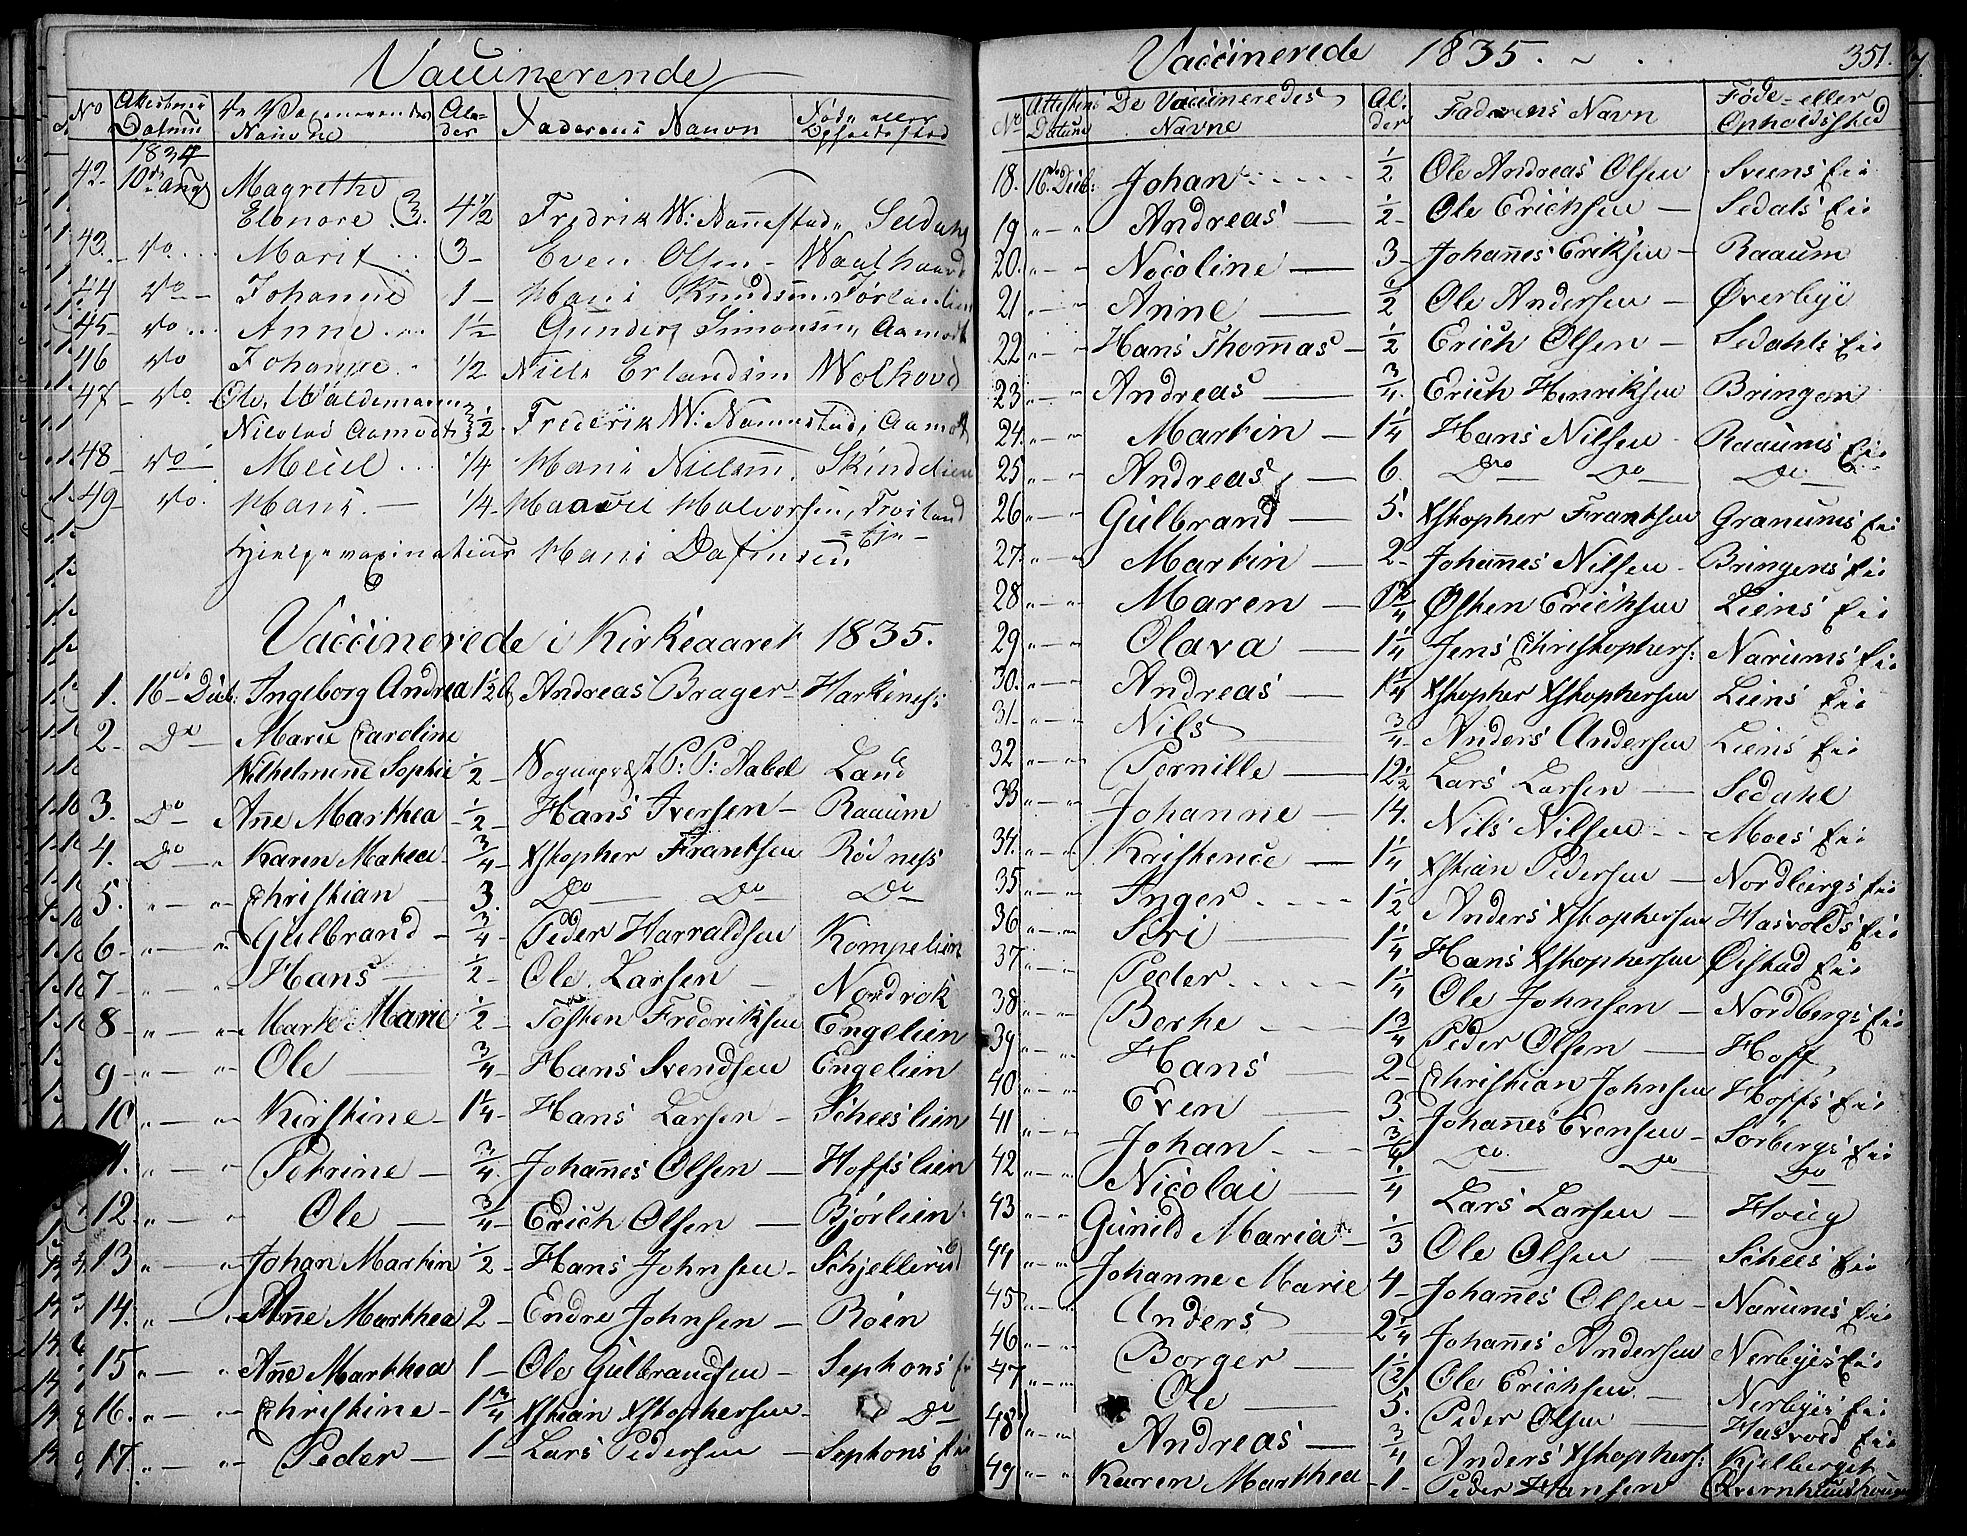 Vaccinerende
No Attestens Datum De Vaccinerendes Navne Al-der Faderens Navn Føde eller Opholdssted
1834
42- 10de Aug Magrethe
Elonore 4 1/2 Fredrik W: Nannestad
43 Do Marit 3- Even Olsen -
44 Do Johanne 1- Hans Knudsen
45- Do Anne 1 1/2 Gunder Simonsen Aamodt
46 Do Johanne 1/2 Niels Erlandsen Wolhovd
47- Do Ole Waldemar
Nicolai Aamodt 1/2 Frederik W: Nannestad, Aamodt
48- Do 1/4 Hans Nielsen
49- Do Hans - 1/4 Halvorsen
Hans
Vaccinerede i Kirkeaaret 1835.
1. 16de Decb: Ingeborg Andrea 1 1/2 Andreas Brager- Harkiness:
2- Do Marie Caroline
Wilhelmine Sophie 1/2- Sogneprest P: P: Nabel Land
3. Do Añe Marthea 1/2- Hans Iversen- Raaum
4. Do Karen Mathea 3/4- Xstopher Frantsen Rødness
5. " — " Christian 3. Do Do Do
6- " — " Gulbrand- 3/4- Peder Harraldsen Kompelien
7- " — " Hans 1/2- Ole Larsen - Nordrok
8- " — " Marte Marie 1/2- Tosten Fredriksen Engelien
9- " — " Ole 3/4- Hans Svendsen Engelien
10. " — " Kirstine- 1 1/4- Hans Larsen- Scheeslien
11. " — " Petrine - 3/4. Johañes Olsen - Hoffslien
12. " — " Ole - 3/4- Erich Olsen - Bjørlien
13 " — " Johan Martin 1/2- Hans Johnsen- Schjellerud
14. " — " Añe Marthea 2- Endre Johnsen- Røen
15 " — " Añe Marthea 1- Ole Gulbrandsen- Sephons Eie
16. " — " Christine- 1 3/4- Xstian Xstophersen- Do
17. " — " Peder - 1- Lars Pedersen - Sephons Eie
Vaccinerede 1835. 351.
No Attestens Datum De Vaccineredes Navne Al-der Faderens Navn Føde- eller Opholdssted
18. 16de Decb: Johan 1/2 Ole Andreas Olsen Sveens Eie
19 " — " Andreas 1/2- Ole Erichsen - Sedals Eie
20. " — " Nicoline - 3- Johañes Eriksen- Raaum
21 " — " Anne - 1/2 Ole Andersen - Øverbye
22 " — " Hans Thomas- 1/2 Erich Olsen - Sedahls Eie
23 " — " Andreas - 3/4. Erich Henriksen Bringen
24. " — " Martin - 1 1/4 Hans Nilsen- Raaums Eie
25 " — " Andreas - 6. Do Do Do
26 " — " Gulbrand - 5. Xstopher Frantsen Granums Eie
27. " — " Martin - 2- Johañes Nilsen- Bringens Eie
28 " — " Maren - 1 3/4 Østen Erichsen Liens Eie
29 " — " Olava - 1 1/4 Jens Christophers: Narums Eie
30. " — " Andreas - 1 1/4 Xstopher Xstophersen Liens Eie
31 " — " Nils 3/4- Anders Andersen Liens Eie
32 " — " Pernille - 12 1/2 Lars Larsen - Sedahl
33 " — " Johanne - 14. Nils Nilsen - Moes Eie
34. " — " Kristence - 1 1/4 Xstian Pedersen- Nordbergs Eie
35 " — " Inger 1 1/2 Anders Xstophersen Hasvolds Eie
36 " — " Siri 1 1/4 Hans Xstophersen Øistad Eie
37 " — " Peder 1 1/4 Ole Johnsen- Nordbergs Eie
38 " — " Berte 1 3/4 Peder Olsen - Hoff
39 " — " Hans 2- Christian Johnsen Hoffs Eie
40 " — " Even 3. Johañes Evensen- Sorbergs Eie
41 " — " Johan 3/4 Do Do Do
42 " — " Nicolai - 1/4 Lars Larsen- Houg
43 " — " Gunild Maria- 1/3 Ole Olsen - Schees Eie
44 " — " Johanne Marie 4- Johañes Olsen- Narums Eie
45 " — " Anders 2 1/4 Johañes Andersen Nerbyes Eie
46 " — " Borger - 1 1/2 Ole Erichsen - Nerbyes Eie
47 " — " Ole - 5. Peder Olsen - Hasvold Eie
48 " — " Andreas - 3/4 Anders Xstophers: Kjelberget
49 " — " Karen Marthea -1- Peder Hansen